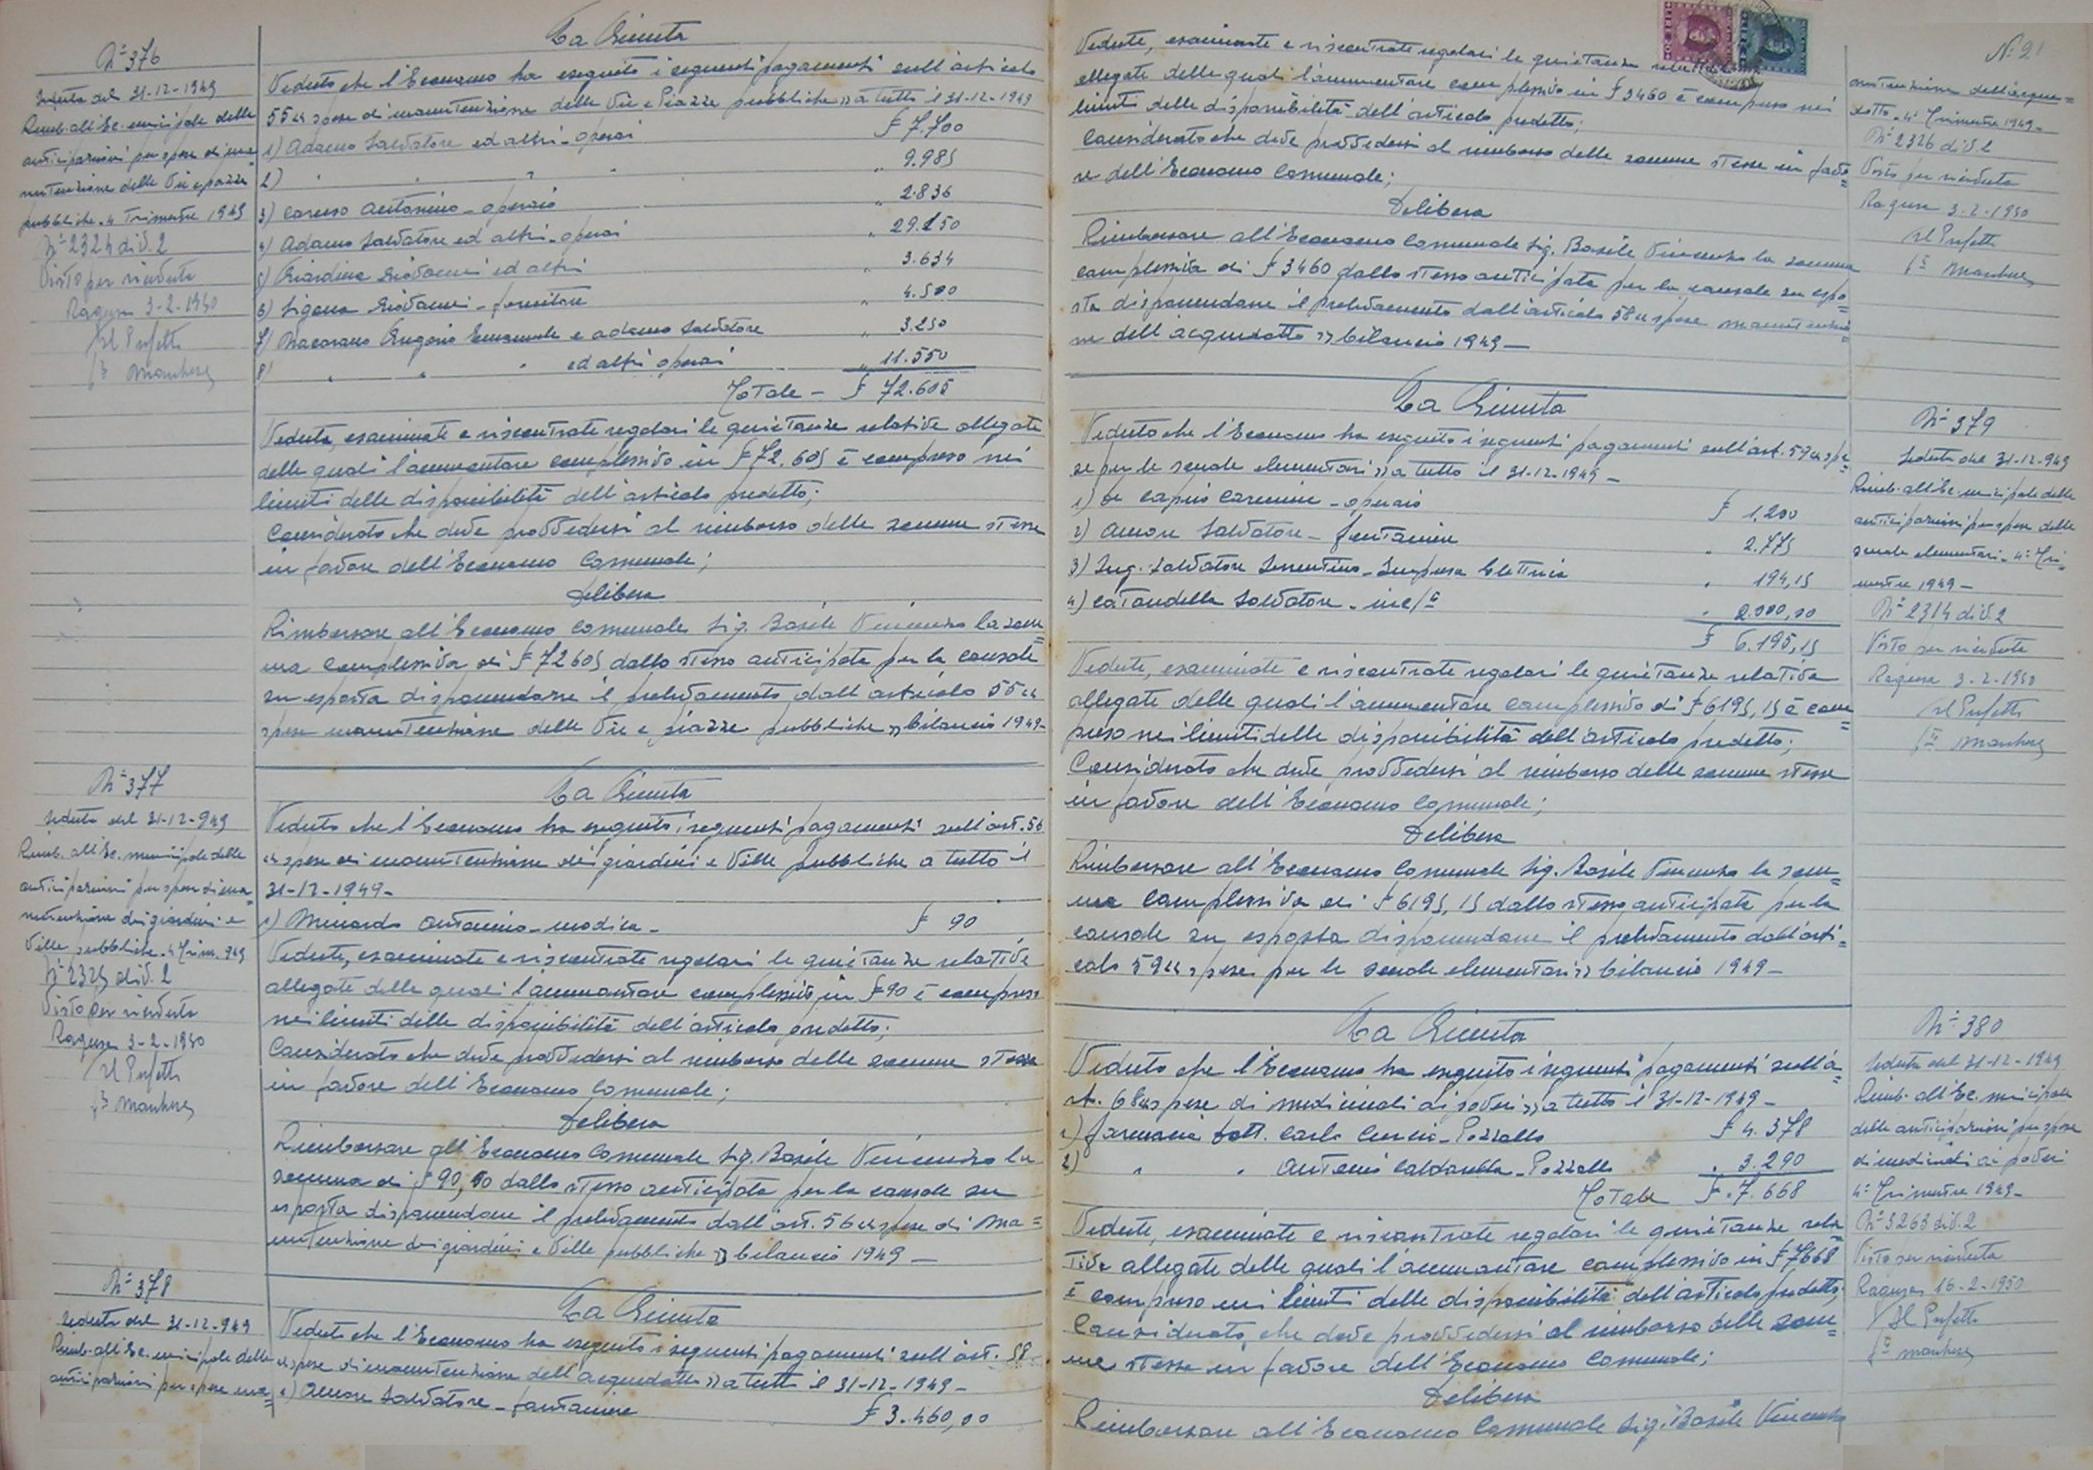 N° 376
Seduta del 31-12-1949
Rimb. all'Ec. municipale delle
anticipazioni per spese di ma=
nutenzione delle Vie e piazze
pubbliche - 4 Trimestre 1949
N° 2324 div. 2
Visto per ricevuta
Ragusa 3-2-1950
Il Prefetto
La Giunta
Veduto che l'Economo ha eseguito i seguenti pagamenti sull'articolo
55 "spese di manutenzione delle Vie e Piazze pubbliche" a tutto il 31-12-1949
1) Adamo Salvatore ed altri - operai £ 7.700
2) " " " " " 9.985
3) Caruso Antonino - operaio " 2.836
4) Adamo Salvatore ed altri - operai " 29.150
5) Giardina Giovanni ed altri " 3.634
6) Sigona Giovanni - fornitore " 4.500
7) Macarano Eugenio Emanuele e Adamo Salvatore " 3.250
8) " " " ed altri operai " 11.550
Totale - £ 72.605
Vedute, esaminate e riscontrate regolari le quietanze relative allegate
delle quali l'ammontare complessivo in £ 72.605 è compreso nei
limiti delle disponibilità dell'articolo predetto;
Considerato che deve provvedersi al rimborso delle somme stesse
in favore dell'Economo Comunale;
Delibera
Rimborsare all'Economo Comunale Sig. Basile Vincenzo la som=
ma complessiva di £ 72605 dallo stesso anticipata per la causale
su esposta disponendosene il prelevamento dall'articolo 55 "
spese manutenzione delle Vie e piazze pubbliche" bilancio 1949-
N° 377
Seduta del 31-12-949
Rimb. all'Ec. municipale delle
anticipazioni per spese di ma=
nutenzione dei giardini e
Ville pubbliche - 4 Trim. 949
N° 2325 div. 2
Visto per ricevuta
Ragusa 3-2-1950
Il Prefetto
La Giunta
Veduto che l'Economo ha eseguito i seguenti pagamenti sull'art. 56
"spese di manutenzione dei giardini e Ville pubbliche a tutto il
31-12-1949-
1) Minardo Antonino - Modica - £ 90
Vedute, esaminate e riscontrate regolari le quietanze relative
allegate delle quali l'ammontare complessivo in £ 90 è compreso
nei limiti delle disponibilità dell'articolo predetto;
Considerato che deve provvedersi al rimborso delle somme stesse
in favore dell'Economo Comunale;
Delibera
Rimborsare all'Economo Comunale Sig. Basile Vincenzo la
somma di £ 90,00 dallo stesso anticipata per la causale su
esposta disponendone il prelevamento dall'art. 56 "spese di Ma=
nutenzione dei giardini e Ville pubbliche" bilancio 1949 -
N° 378
Seduta del 31-12-949
Rimb. all'Ec. municipale delle
anticipazioni per spese ma=
La Giunta
Veduto che l'Economo ha eseguito i seguenti pagamenti sull'art. 58
"spese di manutenzione dell'acquedotto" a tutto il 31-12-1949-
1) Amore Salvatore - fontaniere £ 3.460,00
Vedute, esaminate e riscontrate regolari le quietanze relative
allegate delle quali l'ammontare complessivo in £ 3460 è compreso nei
limiti delle disponibilità dell'articolo predetto;
Considerato che deve provvedersi al rimborso delle somme stesse in favo=
re dell'Economo Comunale;
Delibera
Rimborsare all'Economo Comunale Sig. Basile Vincenzo la somma
complessiva di £ 3460 dallo stesso anticipata per la causale su espo=
sta disponendone il prelevamento dall'articolo 58 "spese manutenzio=
ne dell'acquedotto" bilancio 1949 -
N. 21
nutenzione dell'acque=
dotto - 4° Trimestre 1949 -
N° 2326 div. 2
Visto per ricevuta
Ragusa 3-2-1950
Il Prefetto
La Giunta
Veduto che l'Economo ha eseguito i seguenti pagamenti sull'art. 59 "spe=
se per le scuole elementari" a tutto il 31-12-1949 -
1) Di Caprio Carmine - operaio £ 1.200
2) Amore Salvatore - fontaniere " 2.775
3) Ing. Salvatore Sorrentino - Impresa Elettrica " 194,15
4) Cataudella Salvatore - " 2.000,00
£ 6.195,15
Vedute, esaminate e riscontrate regolari le quietanze relative
allegate delle quali l'ammontare complessivo di £ 6195,15 è com=
preso nei limiti delle disponibilità dell'articolo predetto;
Considerato che deve provvedersi al rimborso delle somme stesse
in favore dell'Economo Comunale;
Delibera
Rimborsare all'Economo Comunale Sig. Basile Vincenzo la som=
ma complessiva di £ 6195,15 dallo stesso anticipata per la
causale su esposta disponendone il prelevamento dall'arti=
colo 59 "spese per le scuole elementari" bilancio 1949 -
N° 379
Seduta del 31-12-949
Rimb. all'Ec. municipale delle
anticipazioni per spese delle
scuole elementari - 4° Tri=
mestre 1949 -
N° 2314 div. 2
Visto per ricevuta
Ragusa 3-2-1950
Il Prefetto
La Giunta
Veduto che l'Economo ha eseguito i seguenti pagamenti sull'a=
rt. 68 "spese di medicinali ai poveri" a tutto il 31-12-1949 -
1) Farmacia Dott. Carlo Cuscia - Pozzallo £ 4.378
2) " " Antonio Caldarella - Pozzallo " 3.290
Totale £. 7.668
Vedute, esaminate e riscontrate regolari le quietanze rela=
tive allegate delle quali l'ammontare complessivo in £ 7668
è compreso nei limiti delle disponibilità dell'articolo predetto;
Considerato che deve provvedersi al rimborso delle som=
me stesse in favore dell'Economo Comunale;
Delibera
Rimborsare all'Economo Comunale Sig. Basile Vincenzo
N° 380
Seduta del 31-12-1949
Rimb. all'Ec. municipale
delle anticipazioni per spese
di medicinali ai poveri
4° Trimestre 1949 -
N° 3263 div. 2
Visto per ricevuta
Ragusa 16-2-1950
Il Prefetto